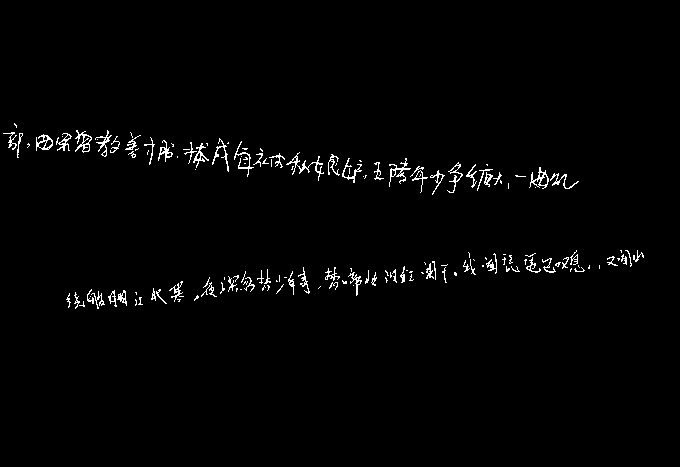 部,曲罢曾教善才服,妆成每被秋娘妒,五陵年少争缠头,一曲红
绕船明江水寒。夜深忽梦少年事,梦啼妆泪红阑干。我闻琵琶已叹息,又闻此